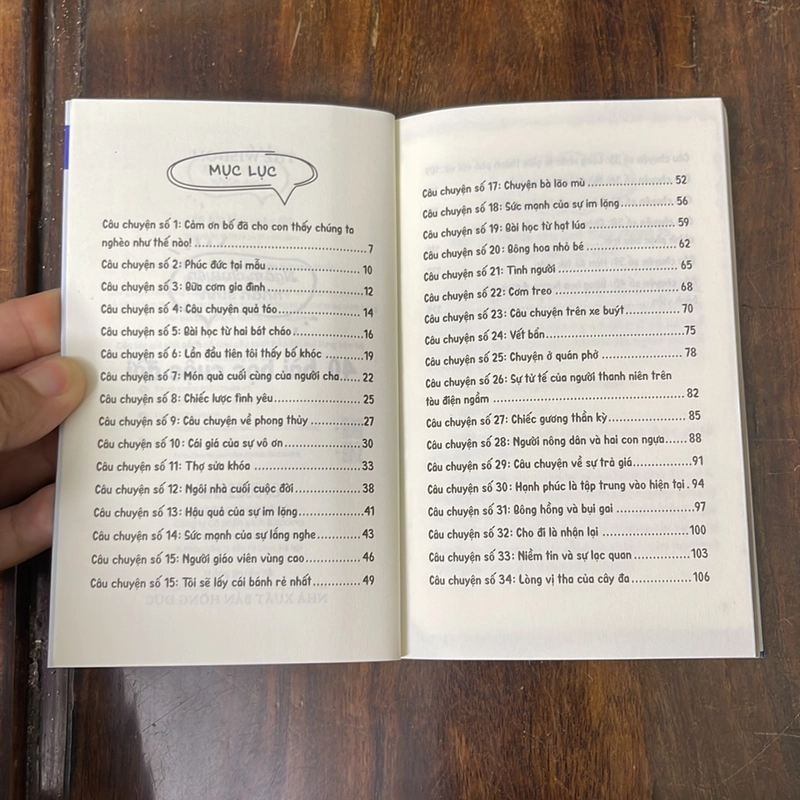 MỤC LỤC
Câu chuyện số 1: Cảm ơn bố đã cho con thấy chúng ta
nghèo như thế nào! ........................................ 7
Câu chuyện số 2: Phúc đức tại mẫu ........................ 10
Câu chuyện số 3: Bữa cơm gia đình ........................ 12
Câu chuyện số 4: Câu chuyện quả táo ...................... 14
Câu chuyện số 5: Bài học từ hai bát cháo ................. 16
Câu chuyện số 6: Lần đầu tiên tôi thấy bố khóc ........... 19
Câu chuyện số 7: Món quà cuối cùng của người cha ..... 22
Câu chuyện số 8: Chiếc lược tình yêu ..................... 25
Câu chuyện số 9: Câu chuyện về phong thủy ................ 27
Câu chuyện số 10: Cái giá của sự vô ơn ................... 30
Câu chuyện số 11: Thợ sửa khóa ........................... 33
Câu chuyện số 12: Ngôi nhà cuối cuộc đời ................. 38
Câu chuyện số 13: Hậu quả của sự im lặng ................. 41
Câu chuyện số 14: Sức mạnh của sự lắng nghe .............. 43
Câu chuyện số 15: Người giáo viên vùng cao ............... 46
Câu chuyện số 15: Tôi sẽ lấy cái bánh rẻ nhất ............ 49
Câu chuyện số 17: Chuyện bà lão mù ....................... 52
Câu chuyện số 18: Sức mạnh của sự im lặng ................ 56
Câu chuyện số 19: Bài học từ hạt lúa ..................... 59
Câu chuyện số 20: Bông hoa nhỏ bé ........................ 62
Câu chuyện số 21: Tình người ............................. 65
Câu chuyện số 22: Cơm treo ............................... 68
Câu chuyện số 23: Câu chuyện trên xe buýt ................ 70
Câu chuyện số 24: Vết bẩn ................................ 75
Câu chuyện số 25: Chuyện ở quán phở ...................... 78
Câu chuyện số 26: Sự tử tế của người thanh niên trên
tàu điện ngầm ............................................ 82
Câu chuyện số 27: Chiếc gương thần kỳ .................... 85
Câu chuyện số 28: Người nông dân và hai con ngựa ..... 88
Câu chuyện số 29: Câu chuyện về sự trả giá ............... 91
Câu chuyện số 30: Hạnh phúc là tập trung vào hiện tại . 94
Câu chuyện số 31: Bông hồng và bụi gai ................... 97
Câu chuyện số 32: Cho đi là nhận lại ..................... 100
Câu chuyện số 33: Niềm tin và sự lạc quan ................ 103
Câu chuyện số 34: Lòng vị tha của cây đa ................. 106